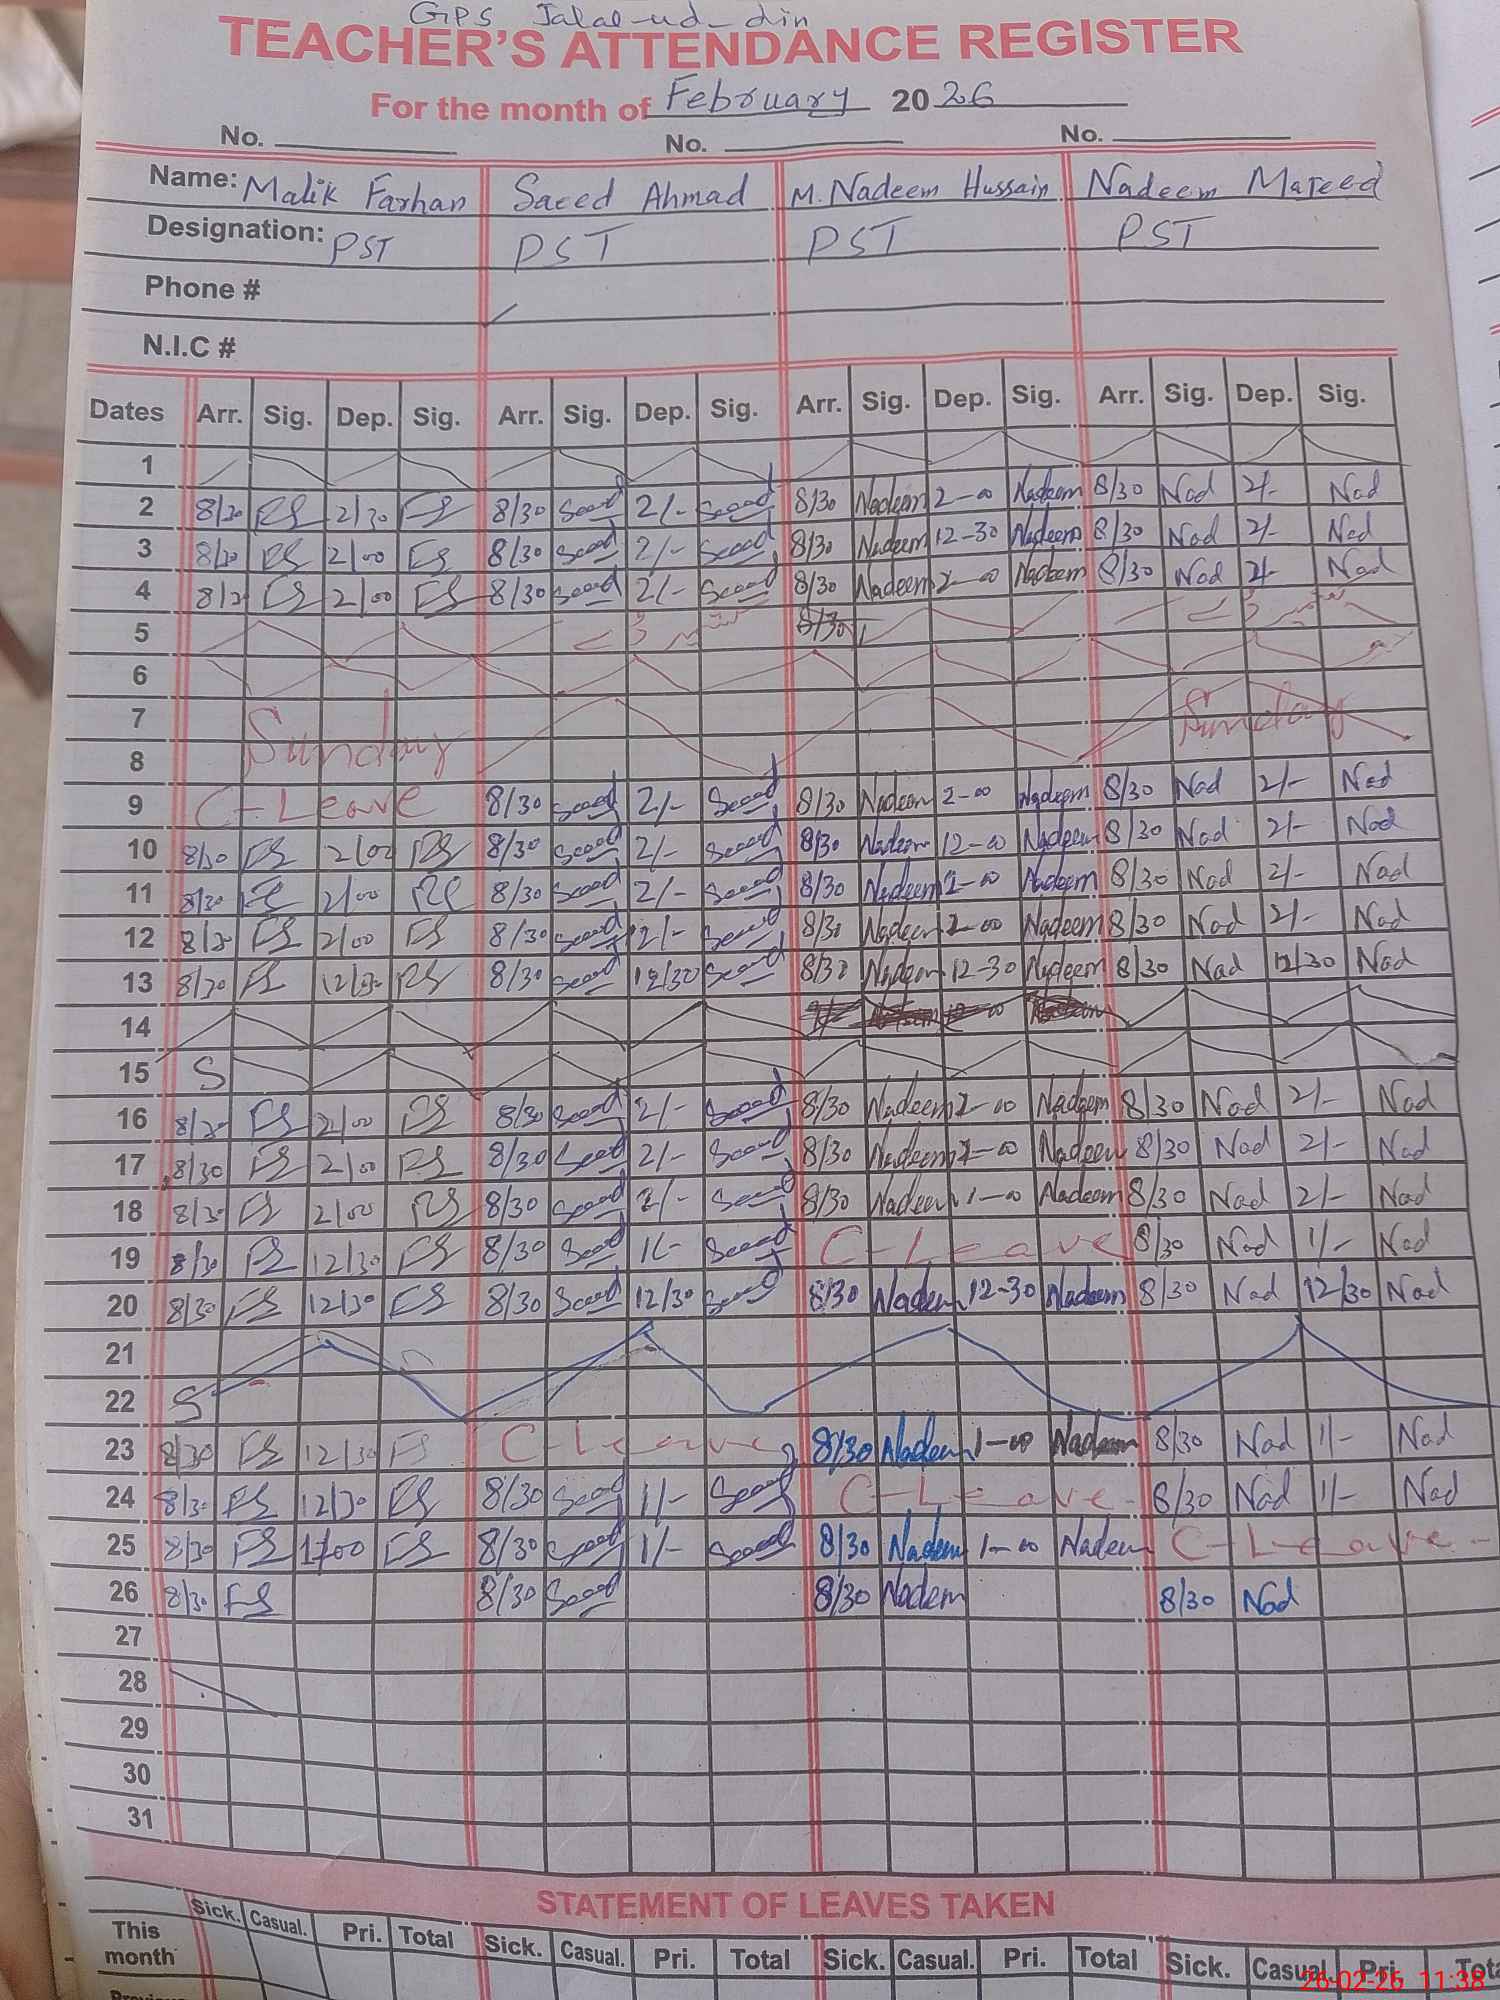 GPS Jalal-ud-din
TEACHER'S ATTENDANCE REGISTER
For the month of February 2026
No. No. No.
Name: Malik Farhan Saeed Ahmad M. Nadeem Hussain Nadeem Mareed
Designation: PST PST PST PST
Phone #
N.I.C #
Dates Arr. Sig. Dep. Sig. Arr. Sig. Dep. Sig. Arr. Sig. Dep. Sig. Arr. Sig. Dep. Sig.
1
2 8/30 FS 2/30 FS 8/30 Saeed 2/- Saeed 8/30 Nadeem 2-00 Nadeem 8/30 Nad 2/- Nad
3 8/30 FS 2/00 FS 8/30 Saeed 2/- Saeed 8/30 Nadeem 12-30 Nadeem 8/30 Nad 2/- Nad
4 8/30 FS 2/00 FS 8/30 Saeed 2/- Saeed 8/30 Nadeem 2-00 Nadeem 8/30 Nad 2/- Nad
5 8/30
6
7
Sunday Sunday
8
9 C-Leave 8/30 Saeed 2/- Saeed 8/30 Nadeem 2-00 Nadeem 8/30 Nad 2/- Nad
10 8/30 FS 2/00 FS 8/30 Saeed 2/- Saeed 8/30 Nadeem 12-00 Nadeem 8/30 Nad 2/- Nad
11 8/30 FS 2/00 FS 8/30 Saeed 2/- Saeed 8/30 Nadeem 2-00 Nadeem 8/30 Nad 2/- Nad
12 8/30 FS 2/00 FS 8/30 Saeed 2/- Saeed 8/30 Nadeem 2-00 Nadeem 8/30 Nad 2/- Nad
13 8/30 FS 12/30 FS 8/30 Saeed 12/30 Saeed 8/30 Nadeem 12-30 Nadeem 8/30 Nad 12/30 Nad
14
15 S
16 8/30 FS 2/00 FS 8/30 Saeed 2/- Saeed 8/30 Nadeem 2-00 Nadeem 8/30 Nad 2/- Nad
17 8/30 FS 2/00 FS 8/30 Saeed 2/- Saeed 8/30 Nadeem 2-00 Nadeem 8/30 Nad 2/- Nad
18 8/30 FS 2/00 FS 8/30 Saeed 2/- Saeed 8/30 Nadeem 1-00 Nadeem 8/30 Nad 2/- Nad
19 8/30 FS 12/30 FS 8/30 Saeed 1/- Saeed C-Leave 8/30 Nad 1/- Nad
20 8/30 FS 12/30 FS 8/30 Saeed 12/30 Saeed 8/30 Nadeem 12-30 Nadeem 8/30 Nad 12/30 Nad
21
22 S
23 8/30 FS 12/30 FS C-Leave 8/30 Nadeem 1-00 Nadeem 8/30 Nad 1/- Nad
24 8/30 FS 12/30 FS 8/30 Saeed 1/- Saeed C-Leave 8/30 Nad 1/- Nad
25 8/30 FS 1/00 FS 8/30 Saeed 1/- Saeed 8/30 Nadeem 1-00 Nadeem C-Leave
26 8/30 FS 8/30 Saeed 8/30 Nadeem 8/30 Nad
27
28
29
30
31
STATEMENT OF LEAVES TAKEN
Sick. Casual. Pri. Total Sick. Casual. Pri. Total Sick. Casual. Pri. Total Sick. Casual Pri.
This month
26-02-26 11:38